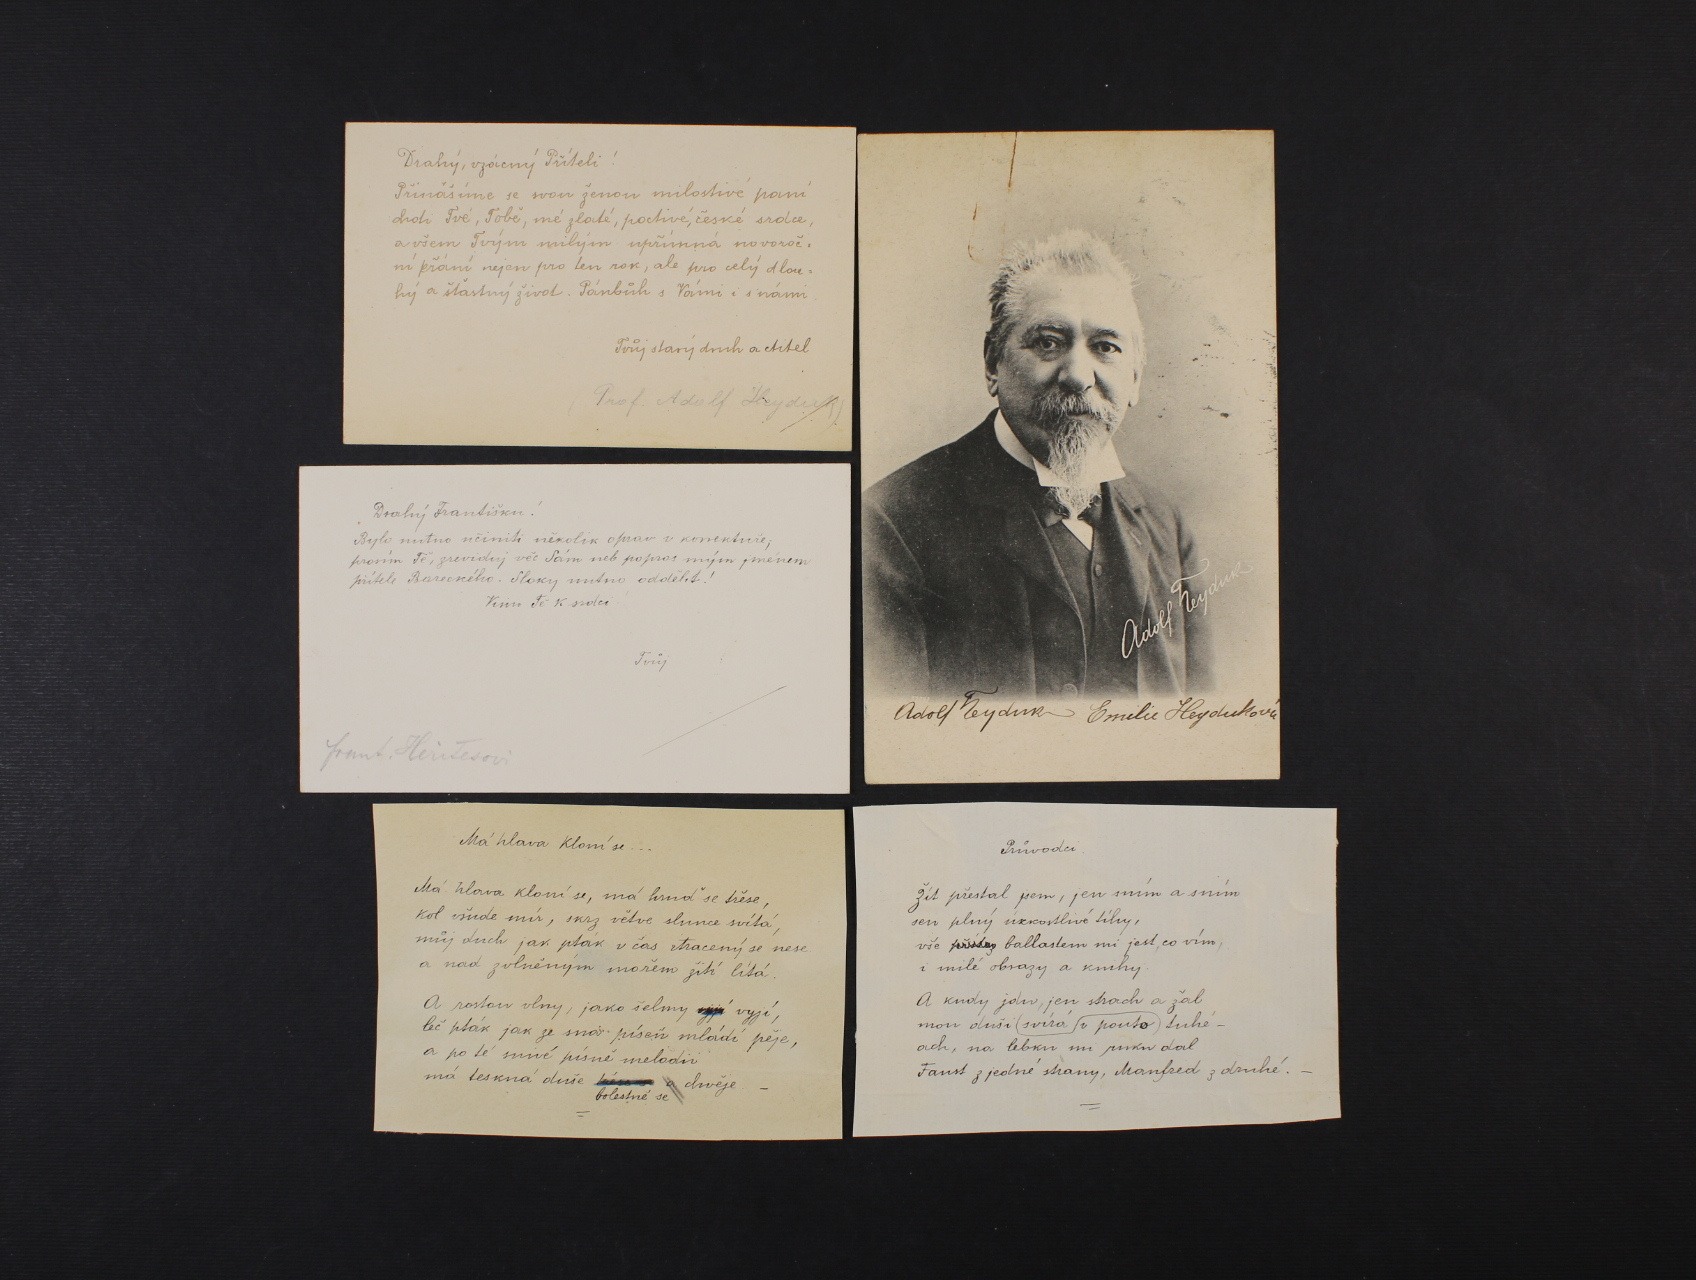 Drahý, vzácný Příteli!
Přinášíme se svou ženou milostivé paní
choti Tvé, Tobě, mé zlaté, poctivé, české srdce,
a všem Tvým milým upřímná novoroč-
ní přání nejen pro ten rok, ale pro celý dlou-
hý a šťastný život. Pánbůh s Vámi i s námi
Tvůj starý druh a ctitel
(Prof. Adolf Heyduk)
Drahý Františku!
Bylo nutno učiniti několik oprav v korektuře,
prosím Tě, zreviduj věc Sám neb popros mým jménem
přítele Bareckého. Sloky nutno oddělit!
Vinu Tě k srdci
Tvůj
Frant. Heritesovi
Adolf Heyduk
Adolf Heyduk Emilie Heyduková
Má hlava kloní se...
Má hlava kloní se, má hruď se třese,
kol všude mír, skrz větve slunce svítá,
můj duch jak pták v čas ztracený se nese
a nad zvlněným mořem žití lítá.
A rostou vlny, jako šelmy vyjí,
leč pták jak ze sna píseň mládí pěje,
a po té snivé písně melodii
má teskná duše chvěje. —
bolestně se
Průvodci.
Žít přestal jsem, jen sním a sním
sen plný úzkostlivé tíhy,
vše ballastem mi jest, co vím,
i milé obrazy a knihy.
A kudy jdu, jen strach a žal
mou duši (svírá v pouto) tuhé —
ach, na lebku mi ruku dal
Faust z jedné strany, Manfred z druhé. —